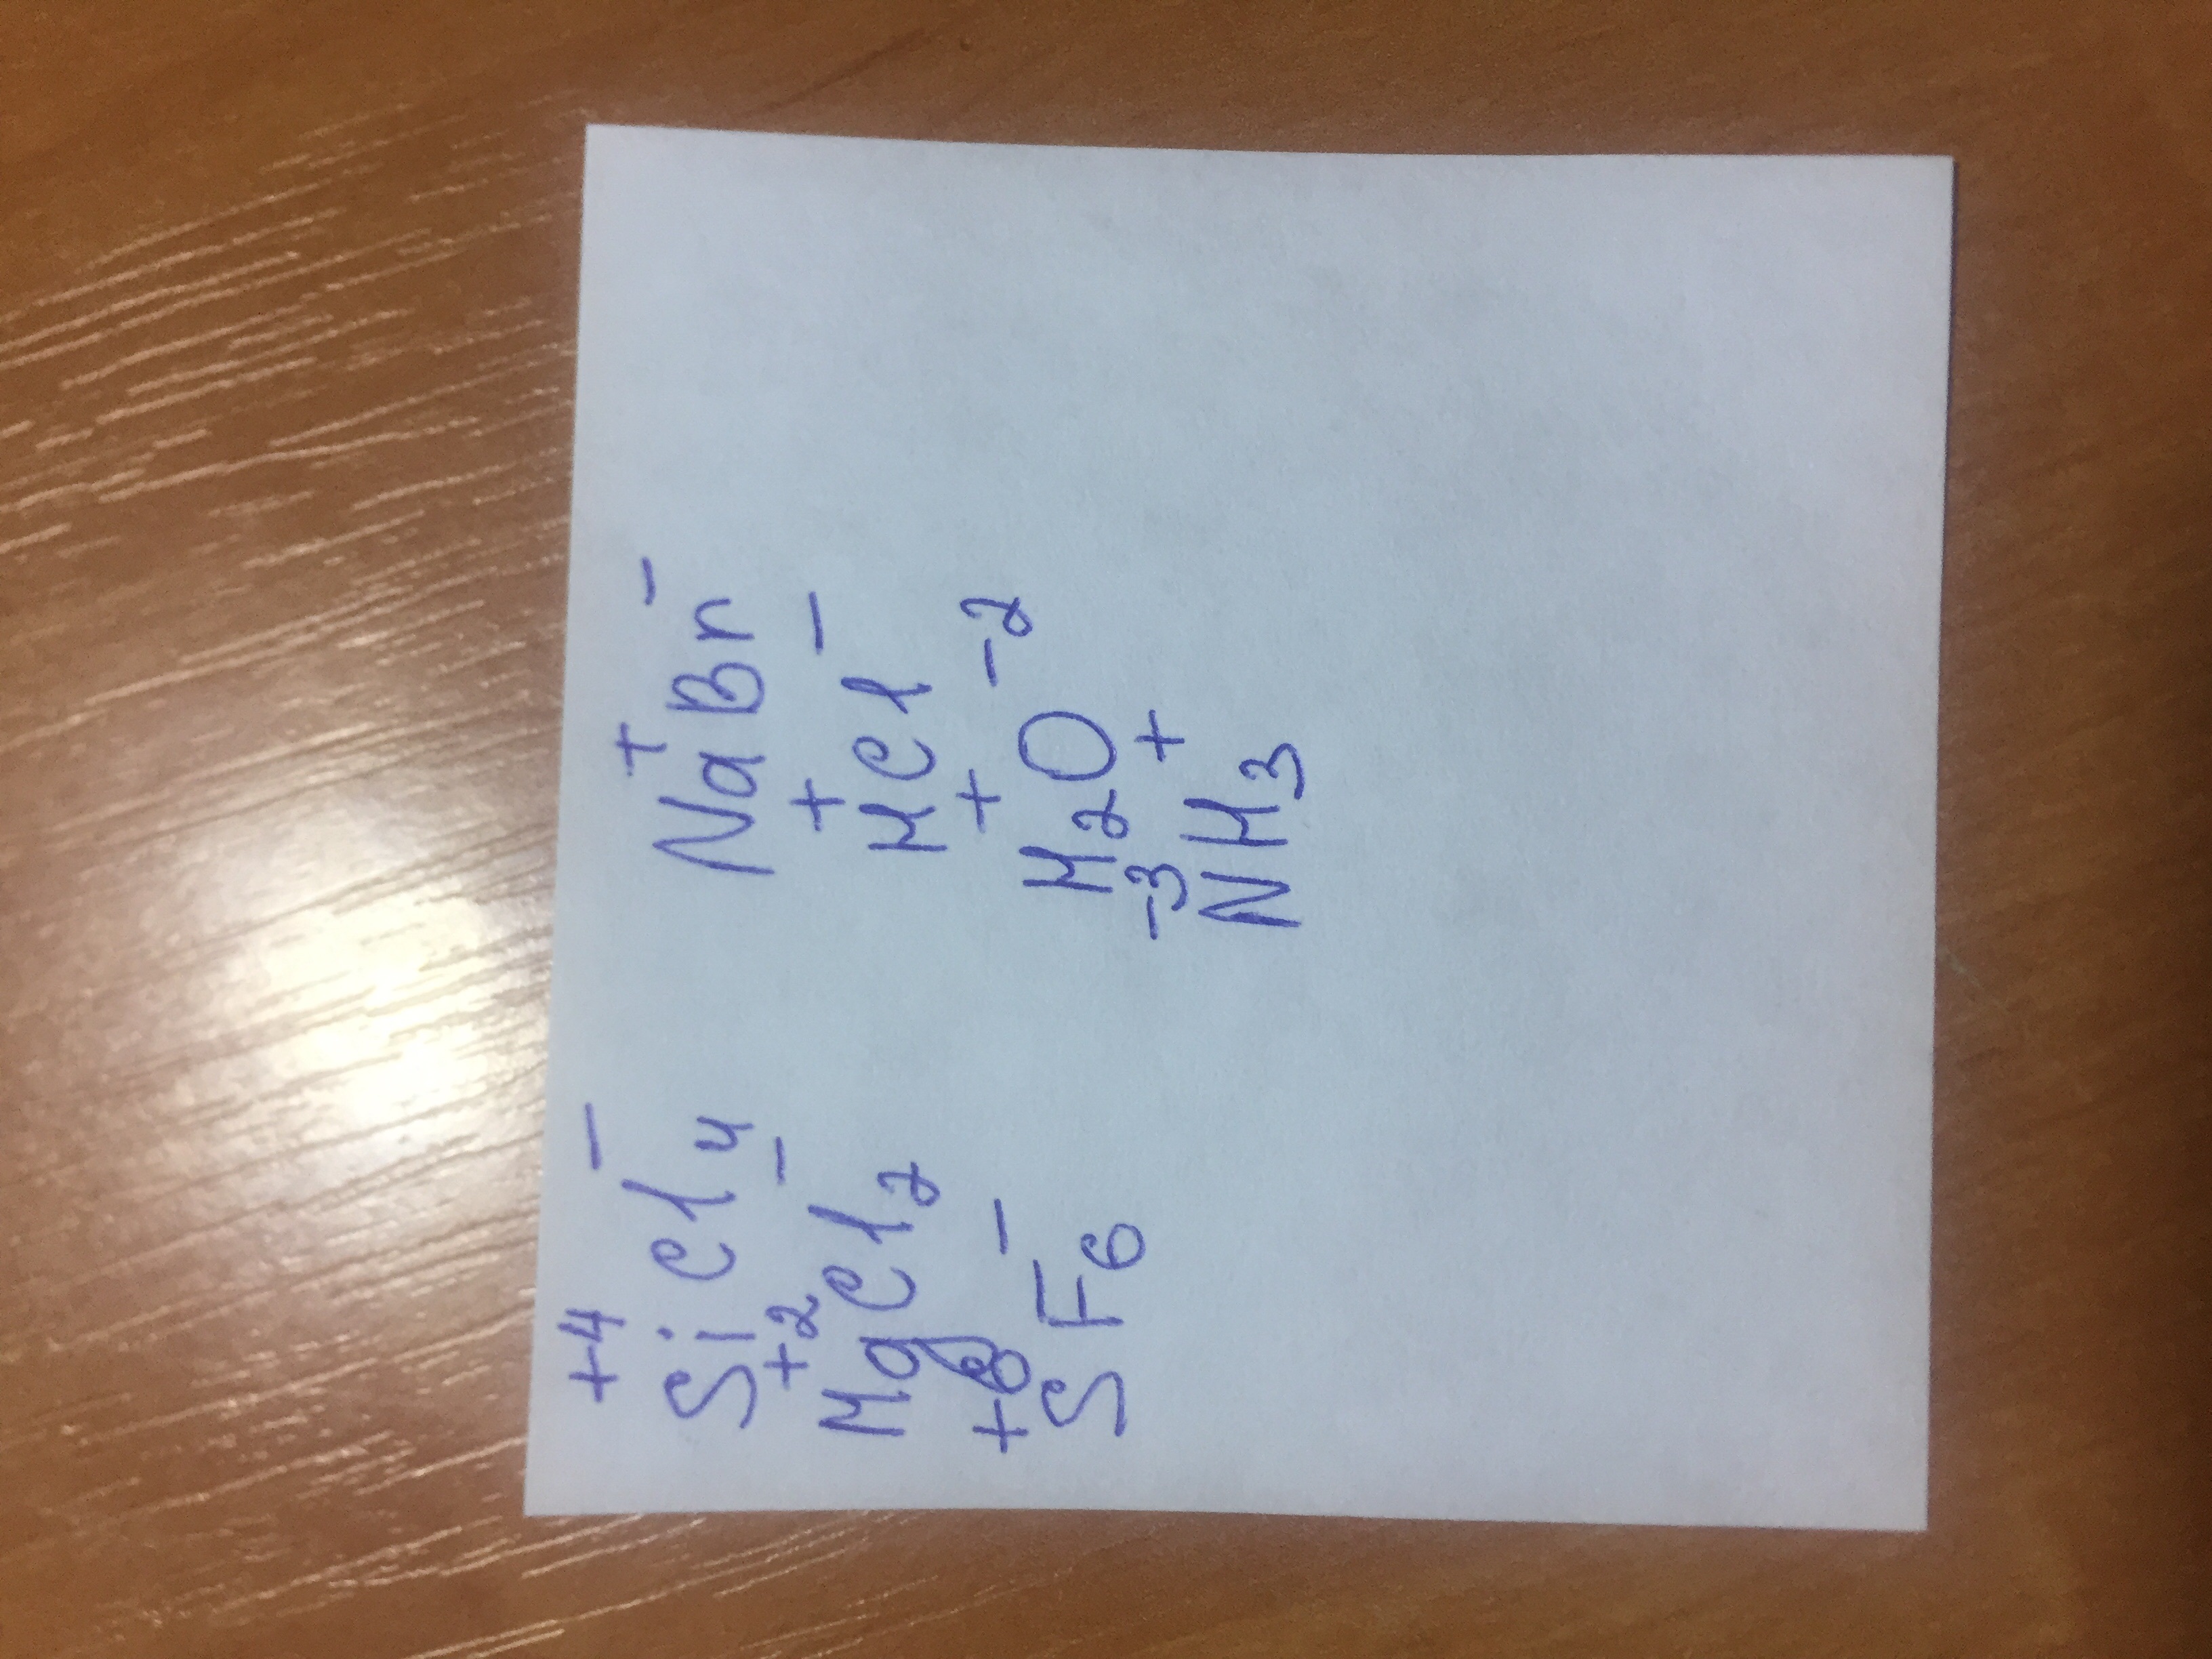 +4 −
SiCl4
+2 −
MgCl2
+6 −
SF6
+ −
NaBr
+ −
HCl
+ −2
H2O
−3 +
NH3